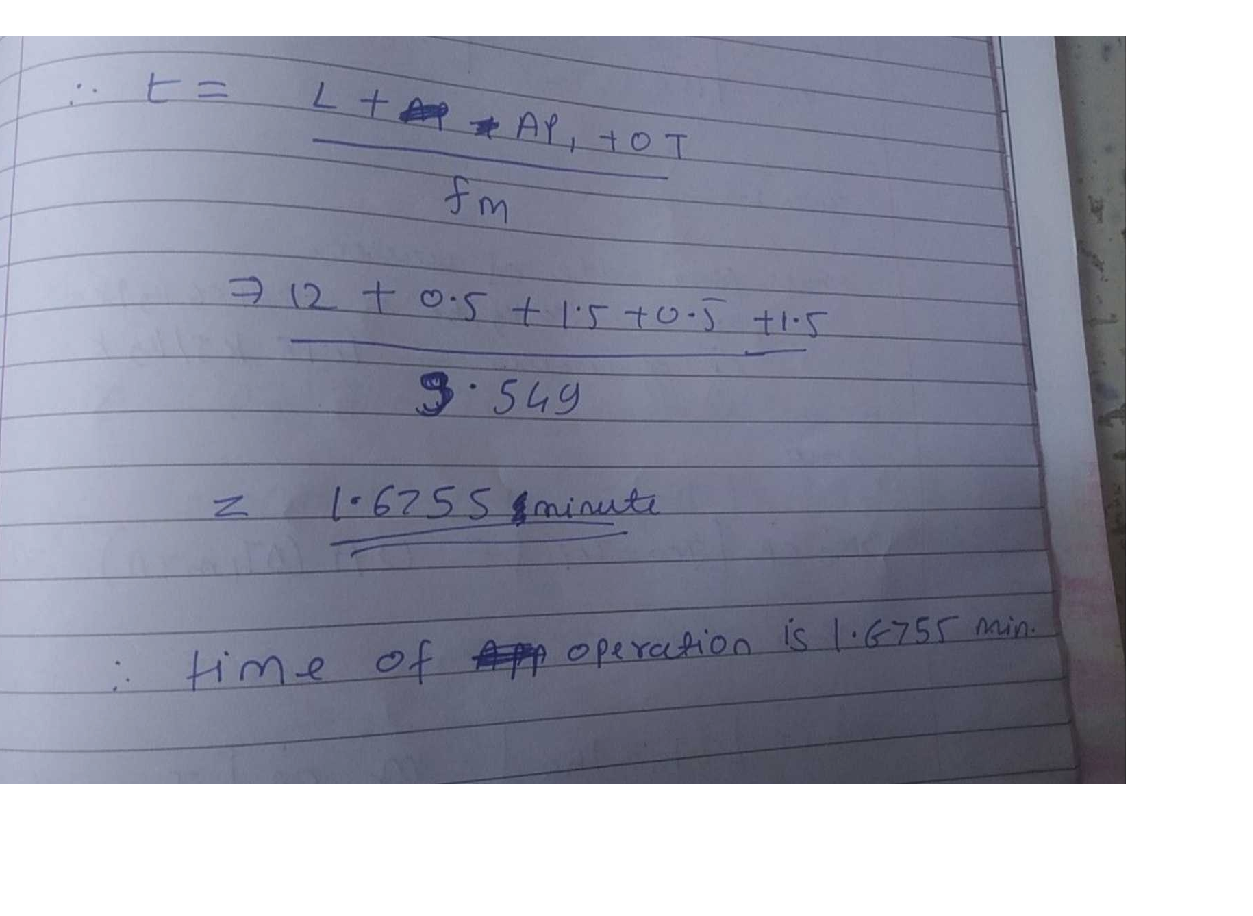 ∴ t = L + AP₁ + OT
fm
⇒ 12 + 0.5 + 1.5 + 0.5 + 1.5
9.549
= 1.6755 minute
∴ time of operation is 1.6755 min.